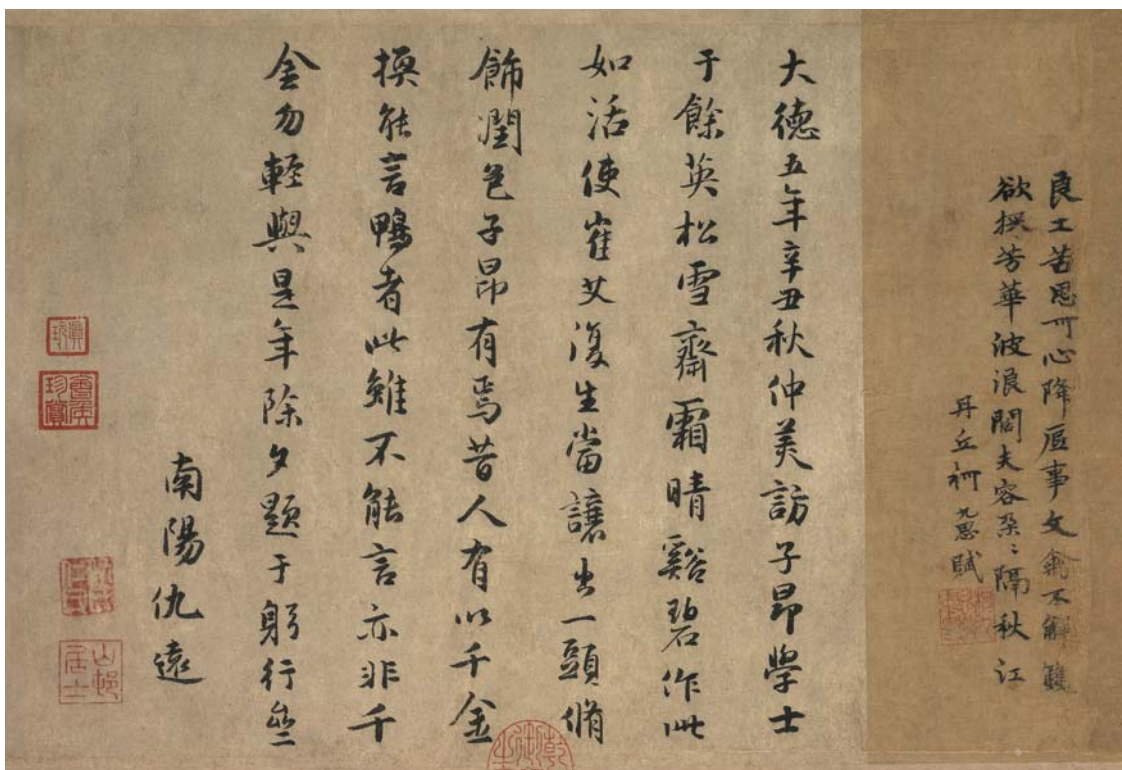 良工苦思可心降底事文禽不解雙
欲採芳華波浪闊夫容朵〻隔秋江
丹丘柯九思賦
大德五年辛丑秋仲美訪子昂學士
于餘英松雪齋霜晴谿碧作此
如活使崔艾復生當讓出一頭脩
飾潤色子昂有焉昔人有以千金
換能言鴨者此雖不能言亦非千
金勿輕與是年除夕題于躬行亝
南陽仇遠
會侯珍賞
山邨居士